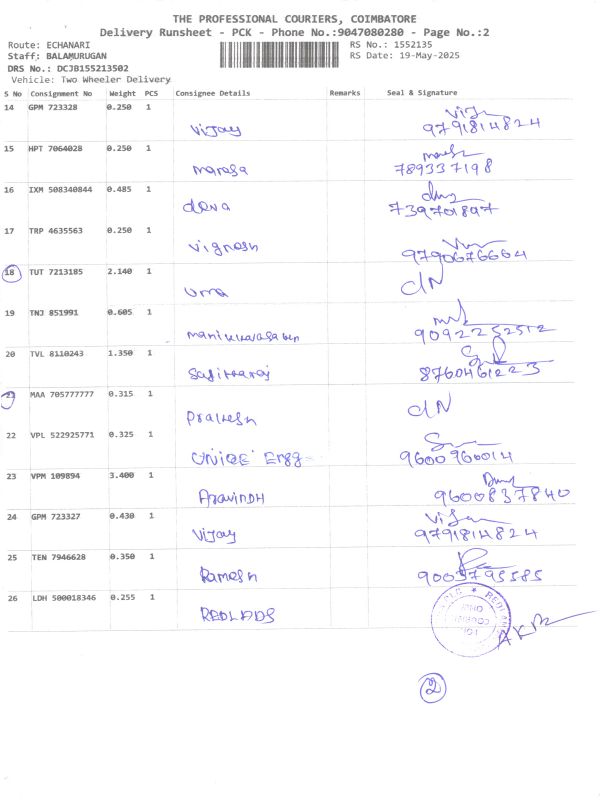 THE PROFESSIONAL COURIERS, COIMBATORE
Delivery Runsheet - PCK - Phone No.:9047080280 - Page No.:2
Route: ECHANARI RS No.: 1552135
Staff: BALAMURUGAN RS Date: 19-May-2025
DRS No.: DCJB155213502
Vehicle: Two Wheeler Delivery
S No Consignment No Weight PCS Consignee Details Remarks Seal & Signature
14 GPM 723328 0.250 1 Vijay 9791814824
15 HPT 7064028 0.250 1 789337198
16 IXM 508340844 0.485 1 deva 739701897
17 TRP 4635563 0.250 1 Vignesh 9790676664
18 TUT 7213185 2.140 1 uma dN
19 TNJ 851991 0.605 1 9092252512
20 TVL 8110243 1.350 1 8760461223
MAA 705777777 0.315 1 Prakesh dN
22 VPL 522925771 0.325 1 UNIQE Engg 9600960014
23 VPM 109894 3.400 1 AravinDH 9600837840
24 GPM 723327 0.430 1 Vijay 9791814824
25 TEN 7946628 0.350 1 Ramesh 9003795585
26 LDH 500018346 0.255 1 REDLADS
2